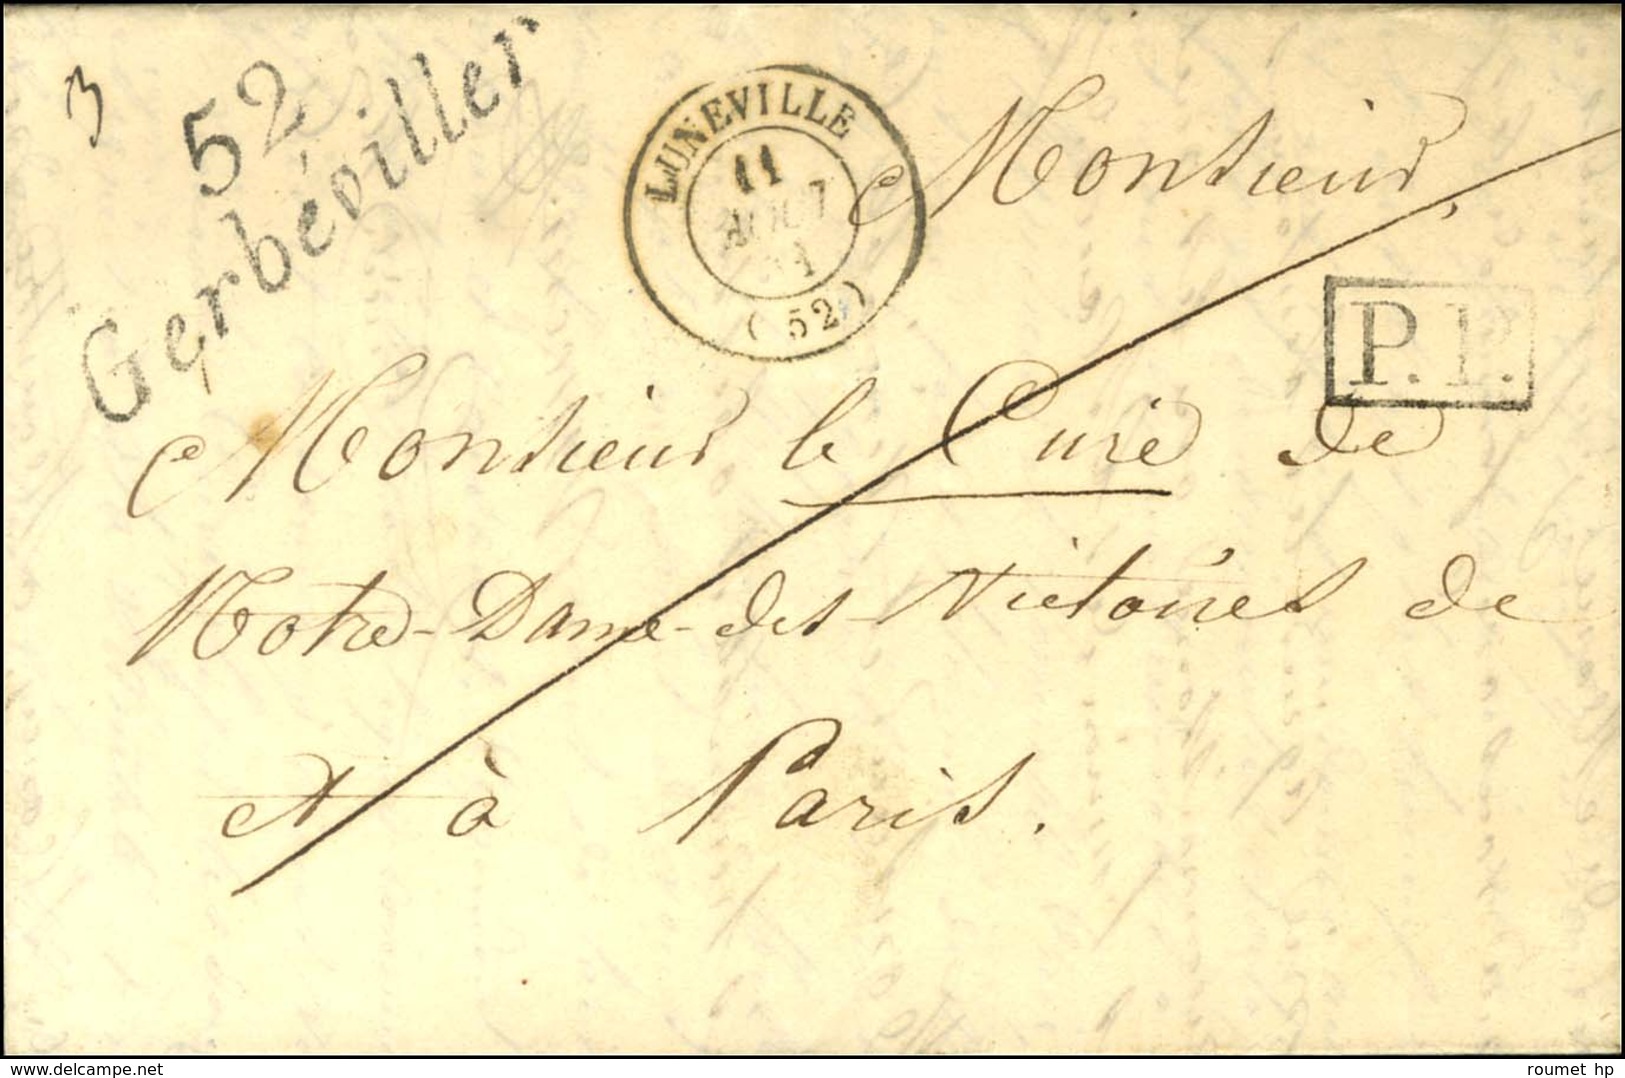 3
52
Gerbéviller
LUNEVILLE
11
AOUT
(52)
Monsieur,
P.P.
Monsieur le Curé de
Notre-Dame-des-Victoires de
et à Paris.
delcampe.net
roumet hp